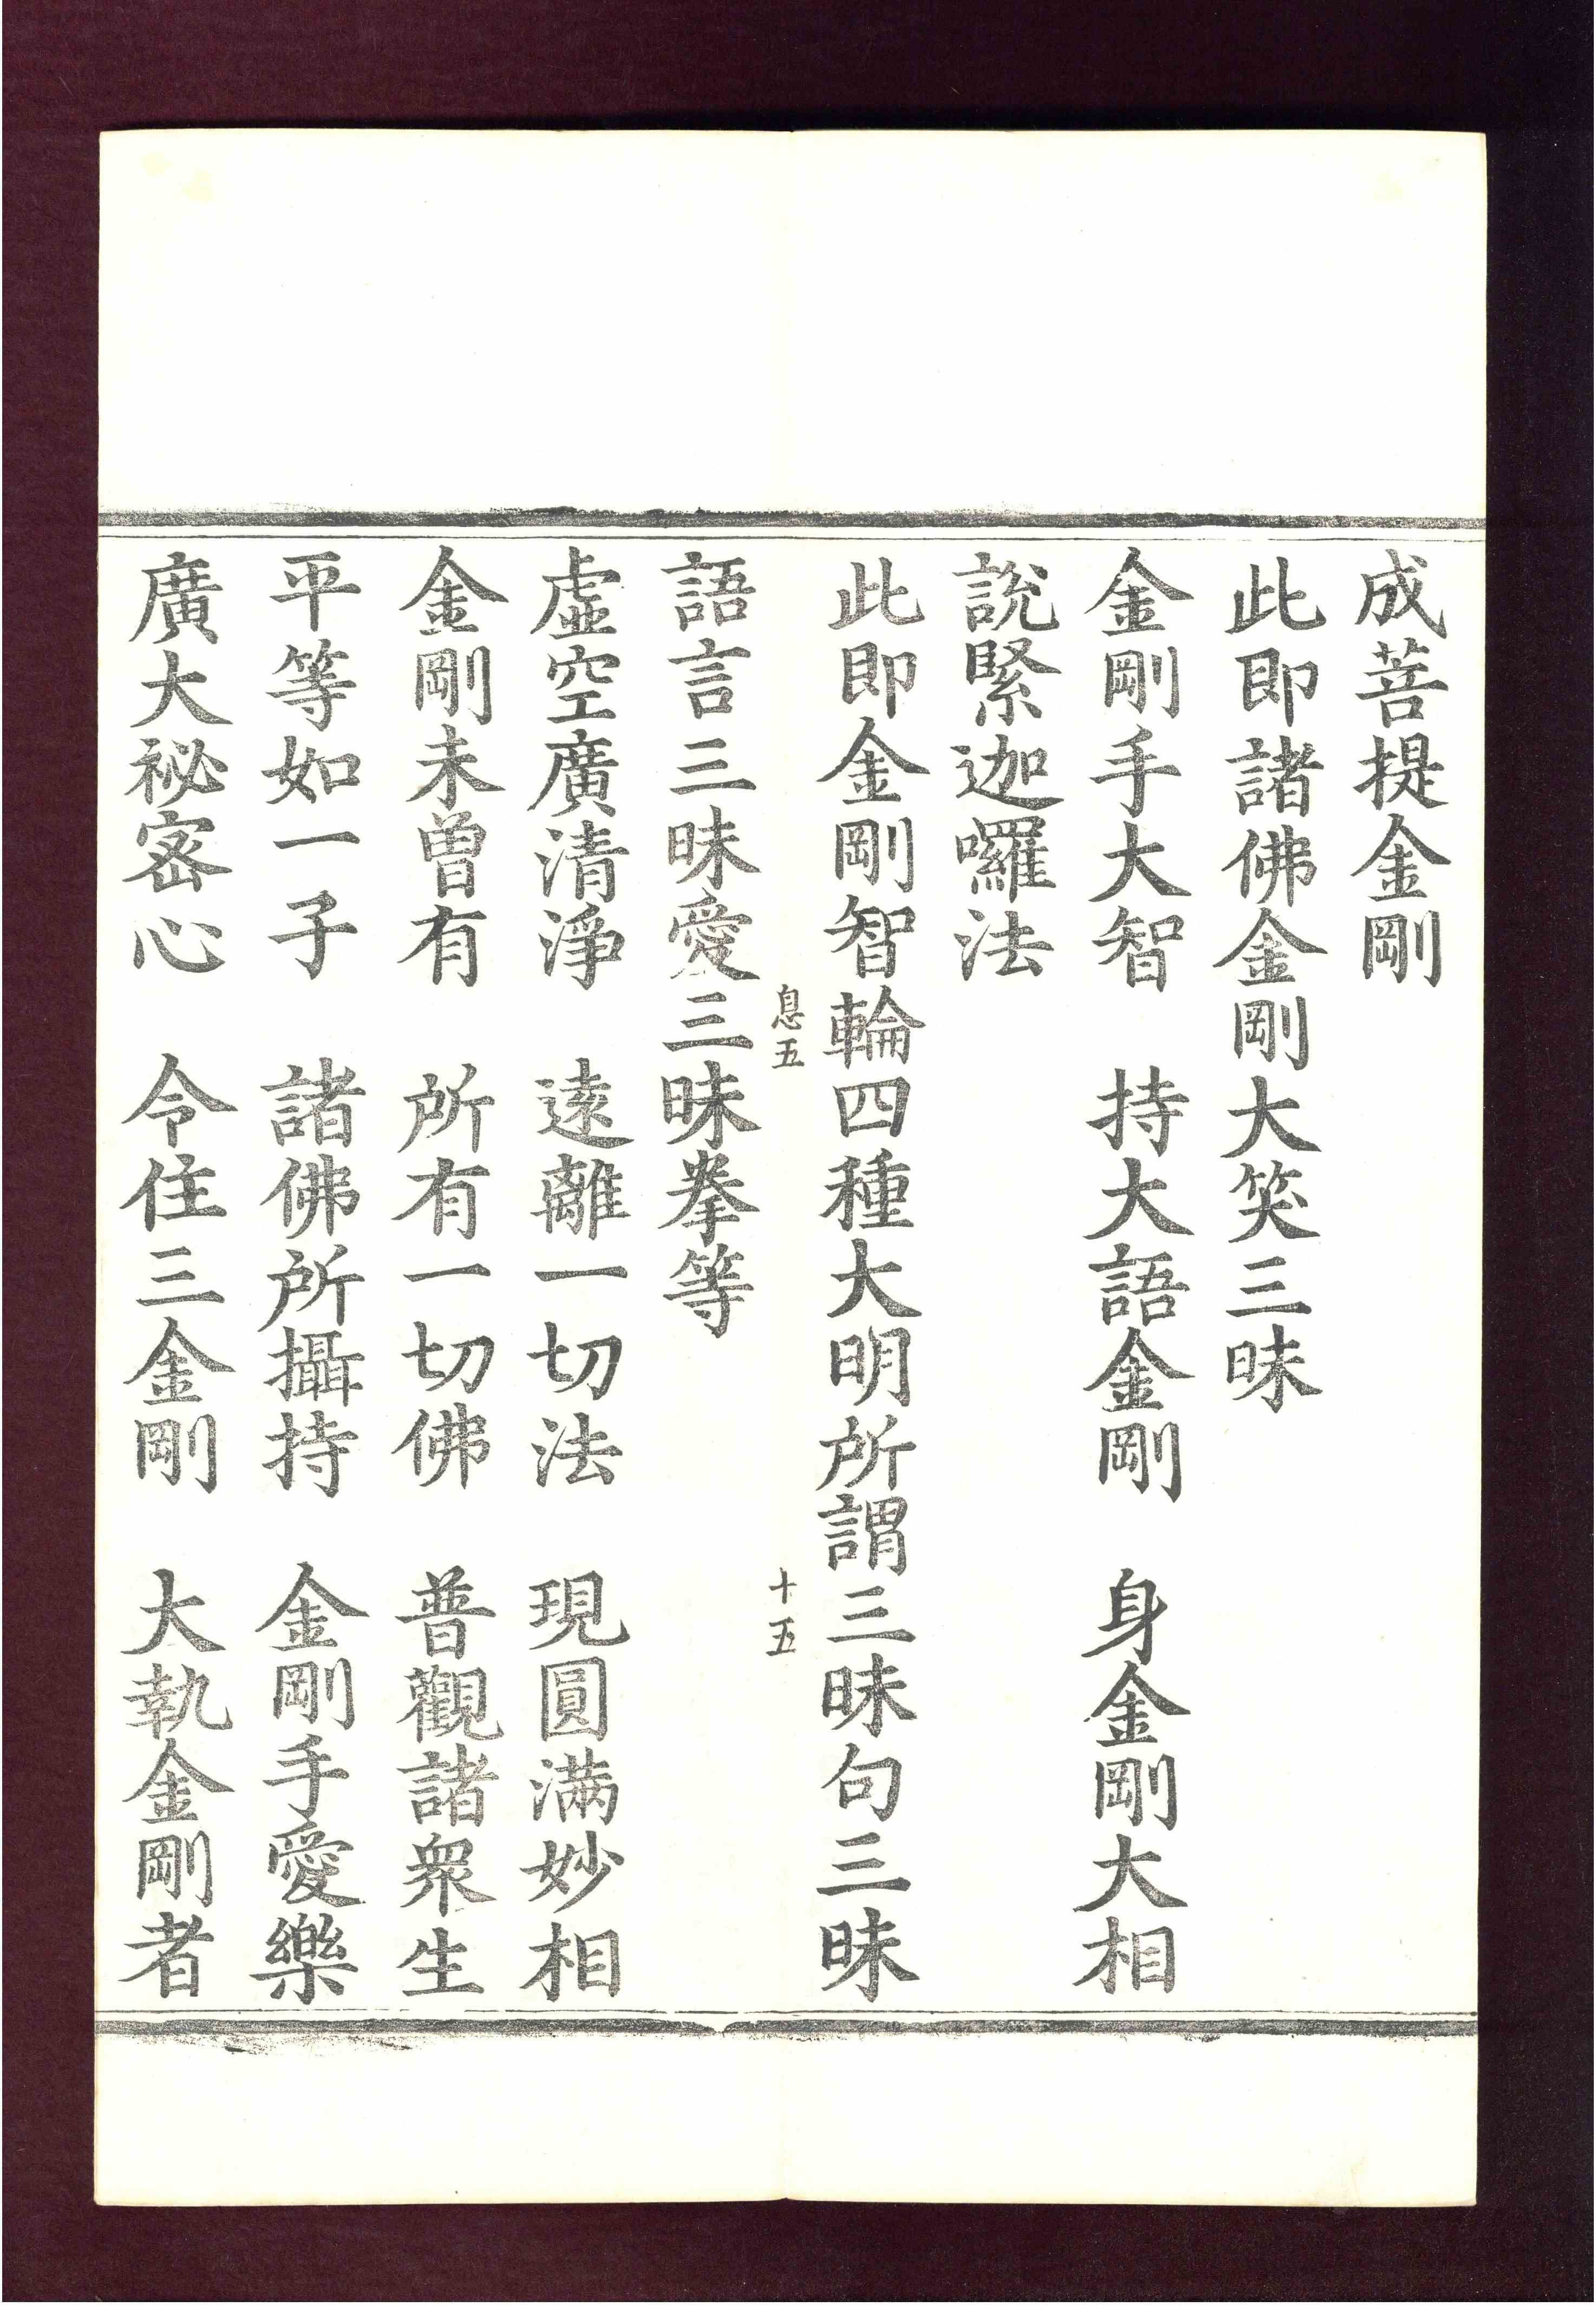 成菩提金剛
此即諸佛金剛大笑三昧
金剛手大智　持大語金剛　身金剛大相
說緊迦囉法
此即金剛智輪四種大明所謂三昧句三昧
息五　十五
語言三昧愛三昧拳等
虛空廣清淨　遠離一切法　現圓滿妙相
金剛未曾有　所有一切佛　普觀諸衆生
平等如一子　諸佛所攝持　金剛手愛樂
廣大祕密心　令住三金剛　大執金剛者